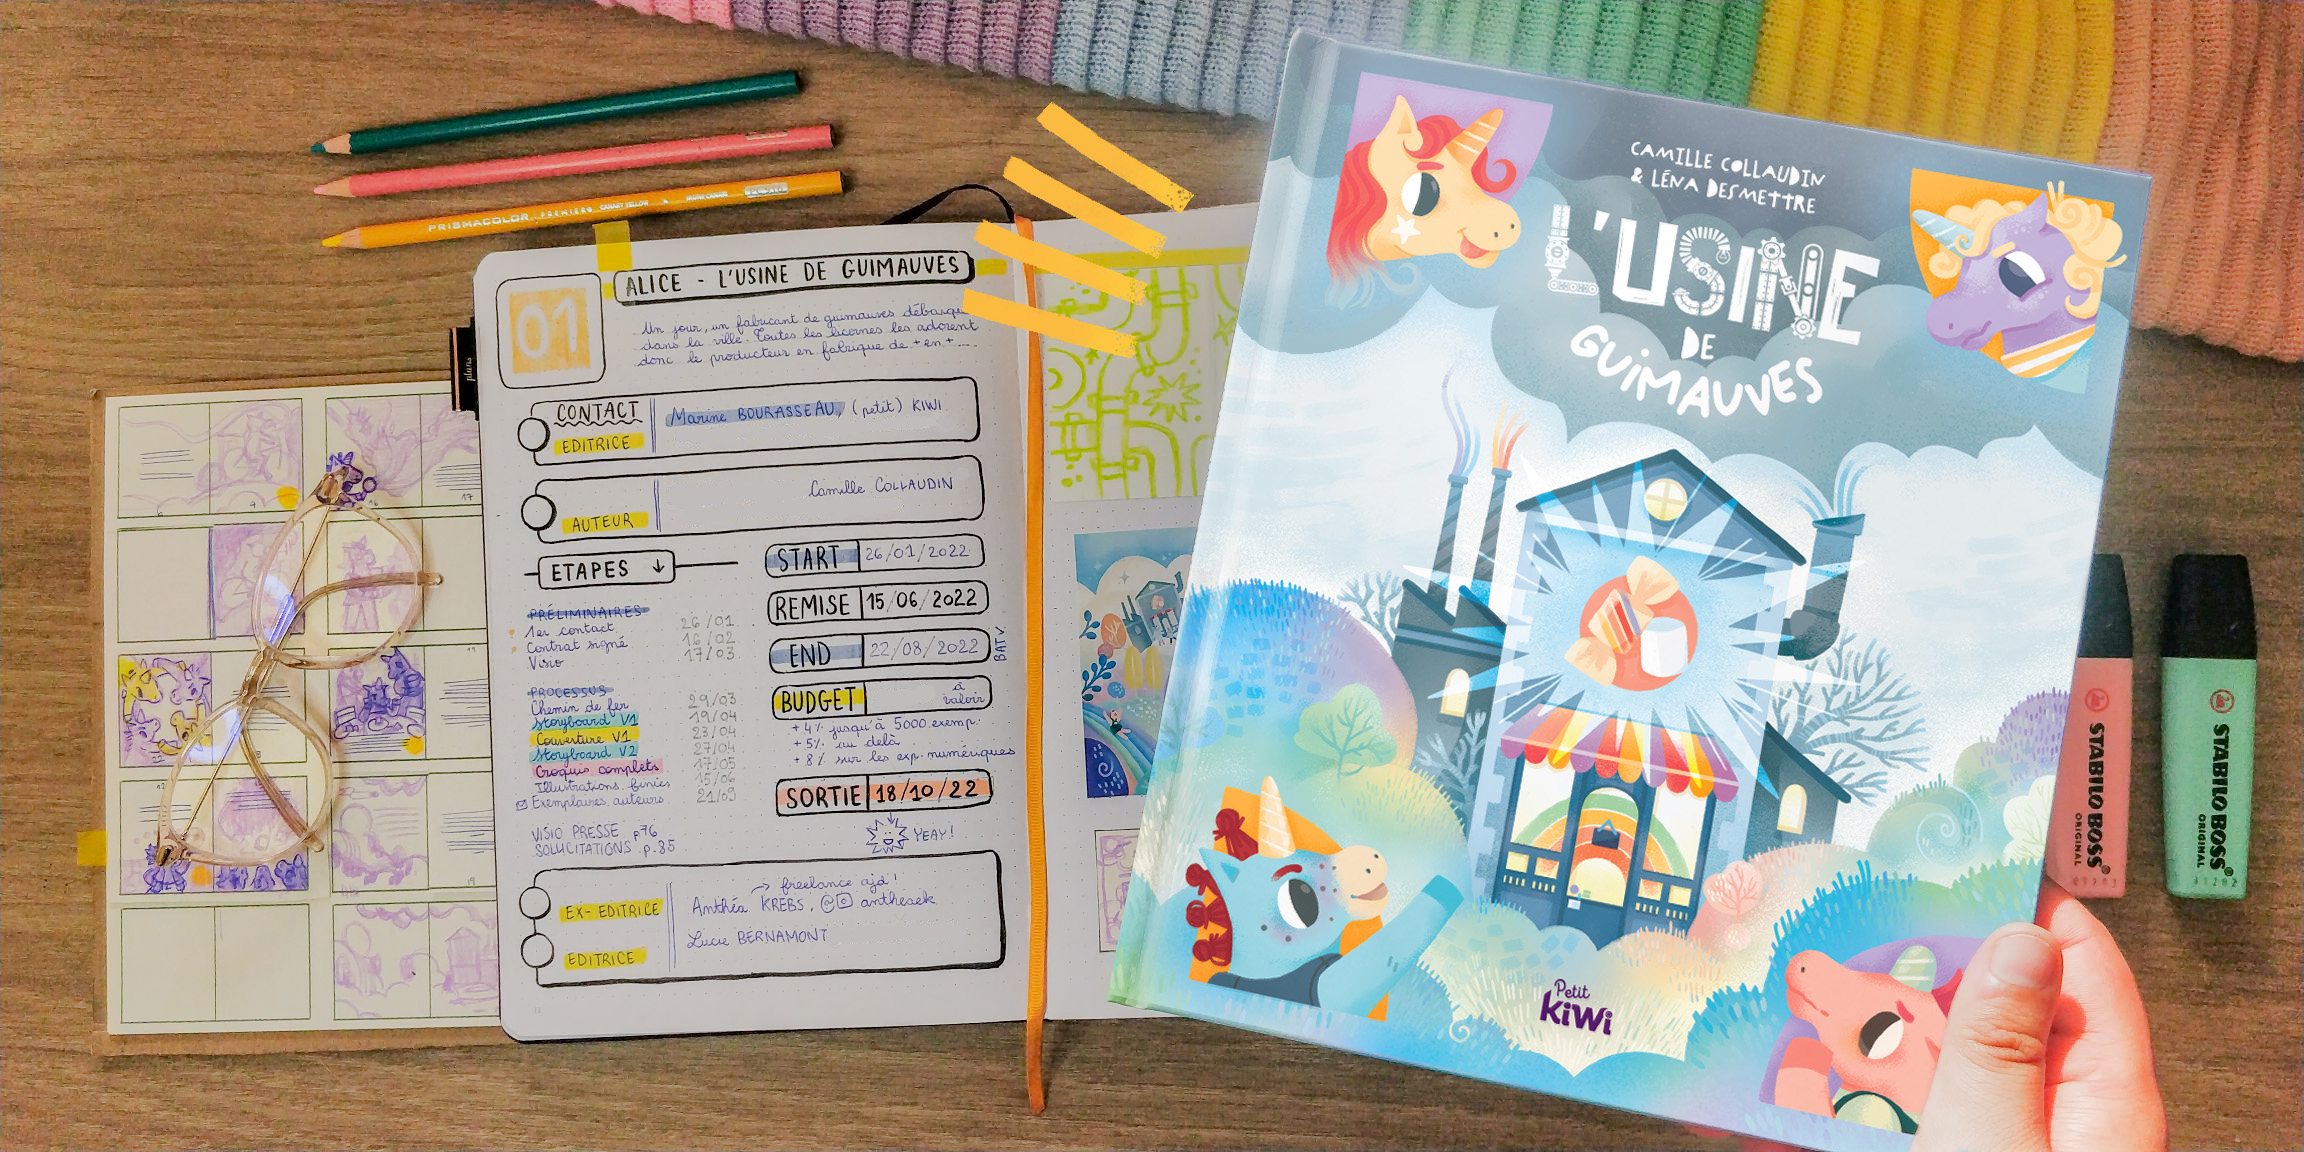 PRISMACOLOR PREMIER CANARY YELLOW
plans
01
ALICE - L'USINE DE GUIMAUVES
Un jour, un fabricant de guimauves débarque
dans la ville. Toutes les licornes les adorent
donc le producteur en fabrique de + en + ....
CONTACT
EDITRICE
Marine BOURASSEAU, (petit) KIWI
AUTEUR
Camille COLLAUDIN
ETAPES ↓
PRÉLIMINAIRES
1er contact 26/01
Contrat signé 16/02
Visio 17/03
PROCESSUS
Chemin de fer 29/03
Storyboard V1 19/04
Couverture V1 23/04
Storyboard V2 27/04
Croquis complets 17/05
Illustrations finies 15/06
Exemplaires auteurs 21/09
VISIO PRESSE p76
SOLLICITATIONS p.85
START 26/01/2022
REMISE 15/06/2022
END 22/08/2022
BAT ✓
BUDGET à valoir
+ 4% jusqu'à 5000 exemp.
+ 5% au delà
+ 8% sur les exp. numériques
SORTIE 18/10/22
YEAY!
EX-EDITRICE
EDITRICE
→ freelance ajd!
Anthéa KREBS, @ antheaek
Lucie BERNAMONT
CAMILLE COLLAUDIN
& LÉNA DESMETTRE
L'USINE
DE
GUIMAUVES
Petit
KiWi
STABILO BOSS®
ORIGINAL
STABILO BOSS®
ORIGINAL